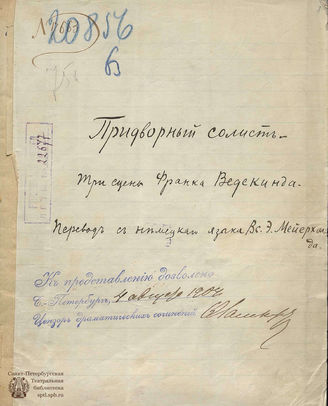 20856
В
Придворный солистъ.
Три сцены Франка Ведекинда.
Переводъ съ нѣмецкаго языка Вс. Э. Мейерхольда.
Къ представленію дозволено.
С.-Петербургъ, 4 августа 1904
Цензоръ драматическихъ сочиненій
Санкт-Петербургская
Театральная
библиотека
sptl.spb.ru